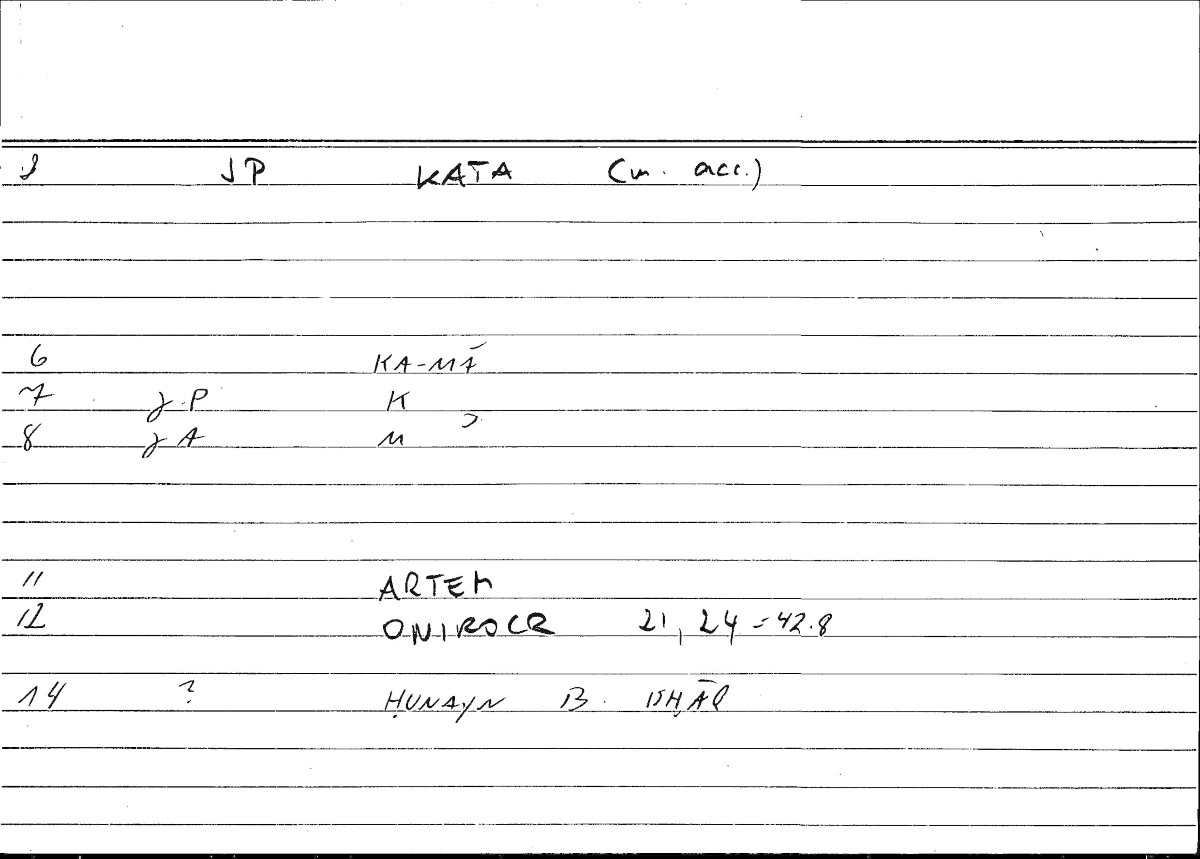 JP KATA (m. acc.)
6 KA-MĀ
7 γ P K
8 γ A M
11 ARTEM
12 ONIROCR 21, 24 = 42.8
14 ? ḤUNAYN B. ISḤĀQ